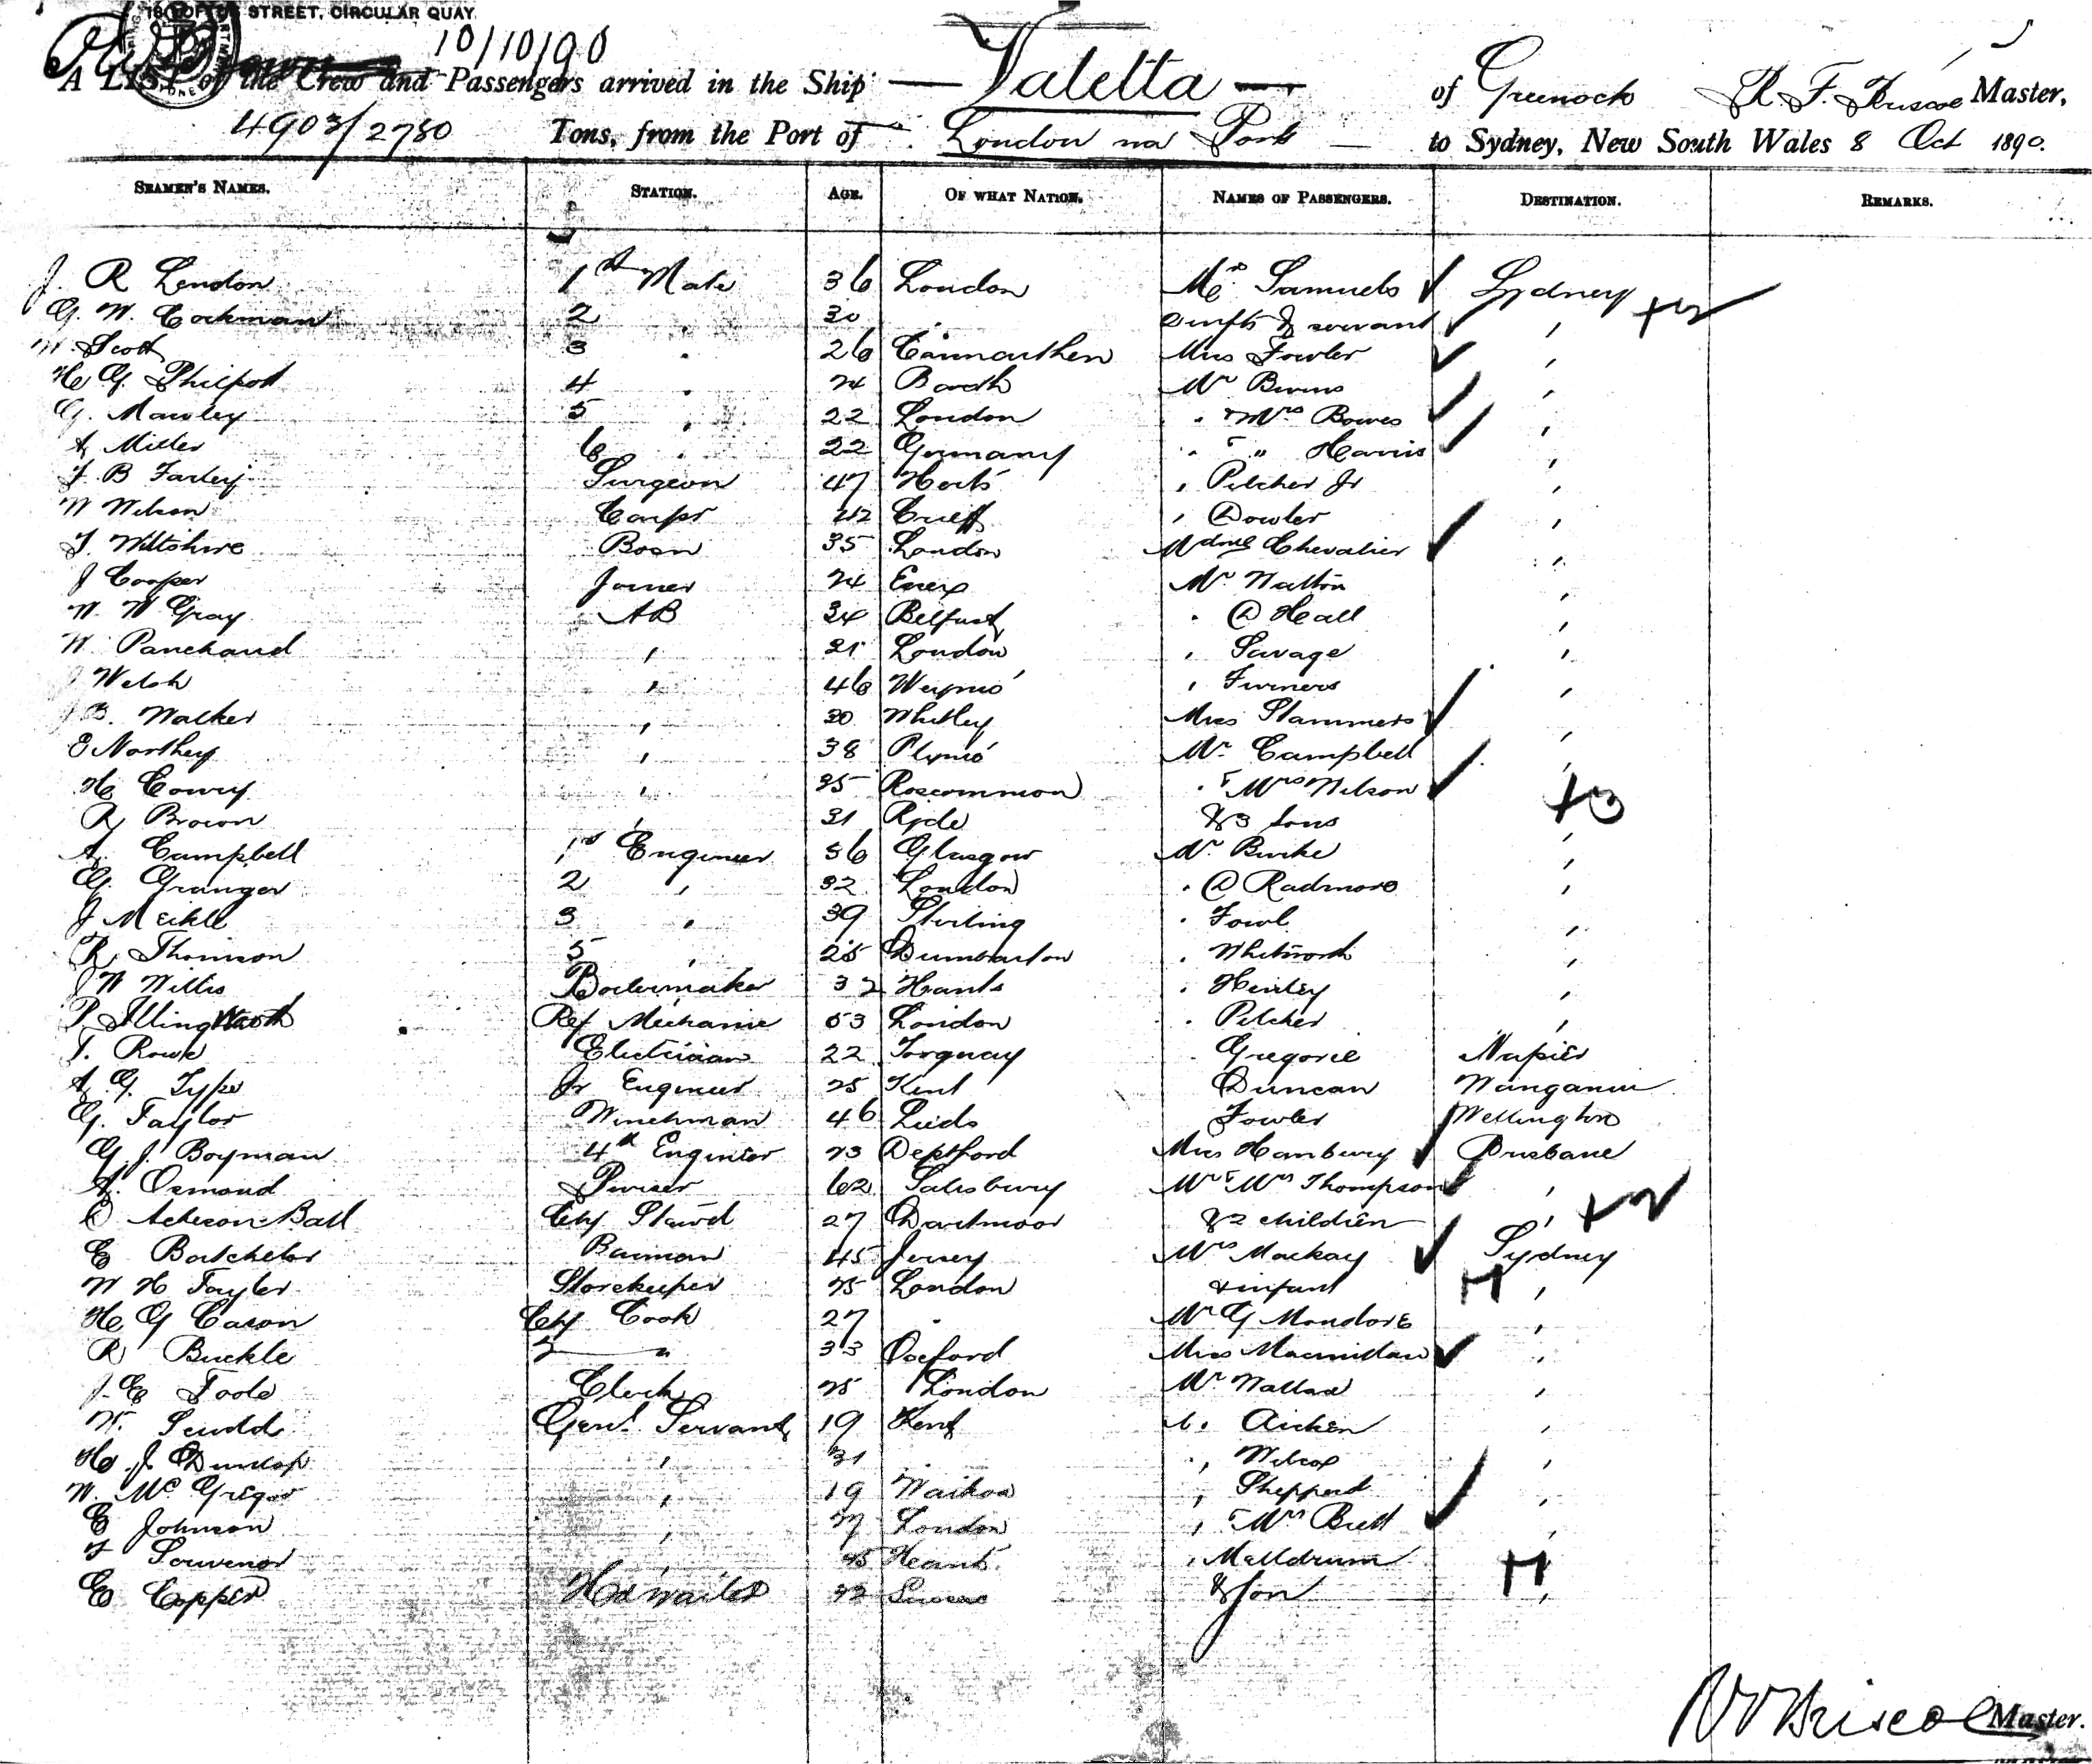 STREET, CIRCULAR QUAY
10/10/90
A LIST of the Crew and Passengers arrived in the Ship Valetta of Greenock R. F. Briscoe Master,
4903/2780 Tons, from the Port of London via Ports to Sydney, New South Wales 8 Oct 1890.
SEAMEN'S NAMES. STATION. AGE. OF WHAT NATION. NAMES OF PASSENGERS. DESTINATION. REMARKS.
J. R Lendon 1st Mate 36 London Mrs Samuels Sydney
G. W. Cockman 2 30 . infts & servant , +2
W. Scott 3 . 26 Carmarthen Miss Fowler ,
H G. Philpott 4 . 24 Mr Burns ,
G. Mawley 5 . 22 London . & Mrs Bowes ,
A Miller 6 . 22 Germany . & " Harris ,
F. B Farley Surgeon 47 Herts , Pilcher Jr ,
W Nelson Carpr 42 Crieff , Dowler ,
T. Wiltshire Bosn 35 London Mdme Chevalier ,
J Cooper Joiner 24 Essex Mr Walton ,
W. W Gray AB 34 Belfast . D Hall ,
W. Panchaud , 21 London , Savage ,
Welsh , 46 Weymo' , Furners ,
B. Walker , 30 Whitley Miss Stammers ,
E Northey , 38 Plymo' Mr Campbell ,
H Cowry , 35 Roscommon . & Mrs Nelson
R Brown , 31 Ryde & 3 sons , +3
A. Campbell 1st Engineer 36 Glasgow Mr Burke ,
G. Granger 2 , 32 London . D Radmore ,
J Meikle 3 , 39 Stirling . Fowl ,
R Thomson 5 , 25 Dumbarton . Whitworth ,
J W Willis Boilermaker 32 Hants . Henley ,
P. Illingworth Ref Mechanic 53 London . Pilcher ,
T. Rowe Electrician 22 Torquay . Gregorie Napier
A G. Type Jr Engineer 25 Kent Duncan Wanganui
G. Taylor Winchman 46 Leeds Fowler Wellington
G. J. Boyman 4th Engineer 23 Deptford Miss Hanbury Brisbane
A. Osmond Purser 62 Salisbury Mr & Mrs Thompson ,
Acheson-Ball Chf Stewd 27 Dartmoor & 2 children , +2
E Batchelor Barman 45 Jersey Mrs Mackay Sydney
W H Tayler Storekeeper 25 London & infant , +1
H G Cason Chf Cook 27 . Mr G Mondore ,
R Buckle 2 " 33 Oxford Miss Macmillan ,
J. E Toole Clerk 25 London Mr Wallace ,
W. Scudd Genl Servant 19 Kent . Aicken ,
H. J. Dunlop , 31 . , Wilcox ,
W. Mc Gregor , 19 , Sheppard ,
E Johnson , 27 London , & Mrs Brett ,
, 45 Hants , Melldrum
E Copper Hd Waiter 42 Sussex & Son , +1
R F Briscoe Master.